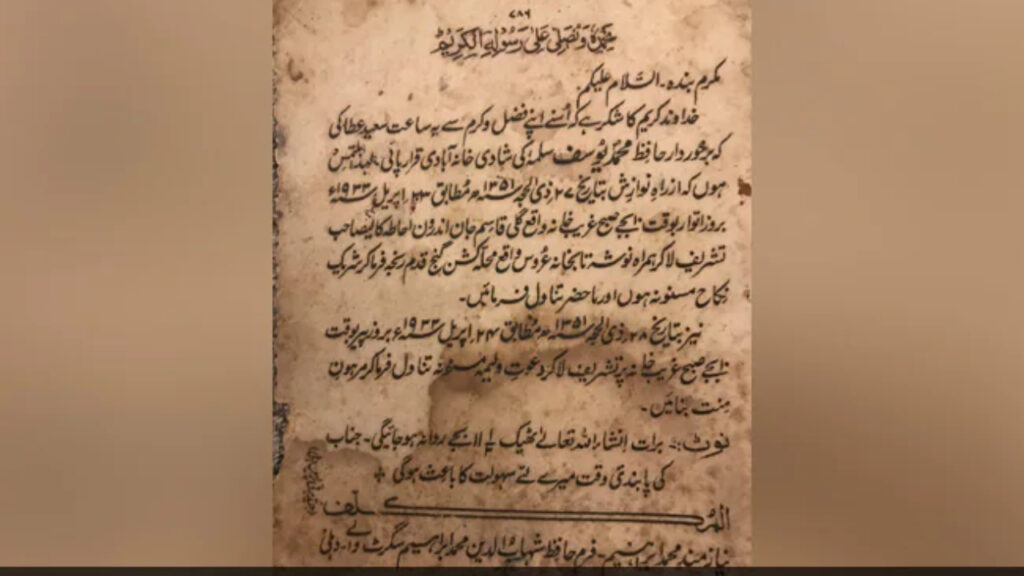 ۷۸۶
نحمدہٗ و نصلی علیٰ رسولہ الکریم
مکرم بندہ۔ السّلام علیکم۔
خداوند کریم کا شکر ہے کہ اُسنے اپنے فضل و کرم سے یہ ساعت سعید عطا کی
کہ برخوردار حافظ محمد یوسف سلمہٗ کی شادی خانہ آبادی قرار پائی۔ لہٰذا ملتمس
ہوں کہ ازراہِ نوازش بتاریخ ۲۷؍ذی الحجہ ۱۳۵۱ھ مُطابق ۲۳؍اپریل ۱۹۳۳ء
بروز اتوار بوقت ۱۰ بجے صبح غریب خانہ واقع گلی قاسم جان اندرُون احاطہ کالیصاحب
تشریف لاکر ہمراہ نوشہ تا بخانہ عُروس واقع محلہ کشن گنج قدم رنجہ فرما کر شریک
نکاح مسنونہ ہوں اور ماحضر تناول فرمائیں۔
نیز بتاریخ ۲۸؍ذی الحجہ ۱۳۵۱ھ مُطابق ۲۴؍اپریل ۱۹۳۳ء بروز پیر بوقت
۱۰ بجے صبح غریب خانہ پر تشریف لاکر دعوت ولیمہ مسنونہ تناول فرما کر مرہون
منت بنائیں۔
نوٹ:۔ برات انشاء اللہ تعالےٰ ٹھیک ۱۱ بجے روانہ ہوجائیگی۔ جناب
کی پابندئ وقت میرے لئے سہولت کا باعث ہوگی
المُکلف
نیازمند محمد ابراہیم۔ فرم حافظ شہاب الدین محمد ابراہیم سگرٹ والے۔ دہلی